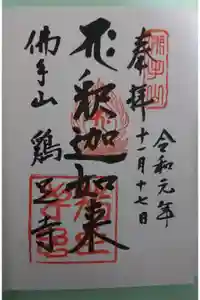 奉拝
令和元年
十一月十七日
釈迦如来
佛手山
鶏足寺